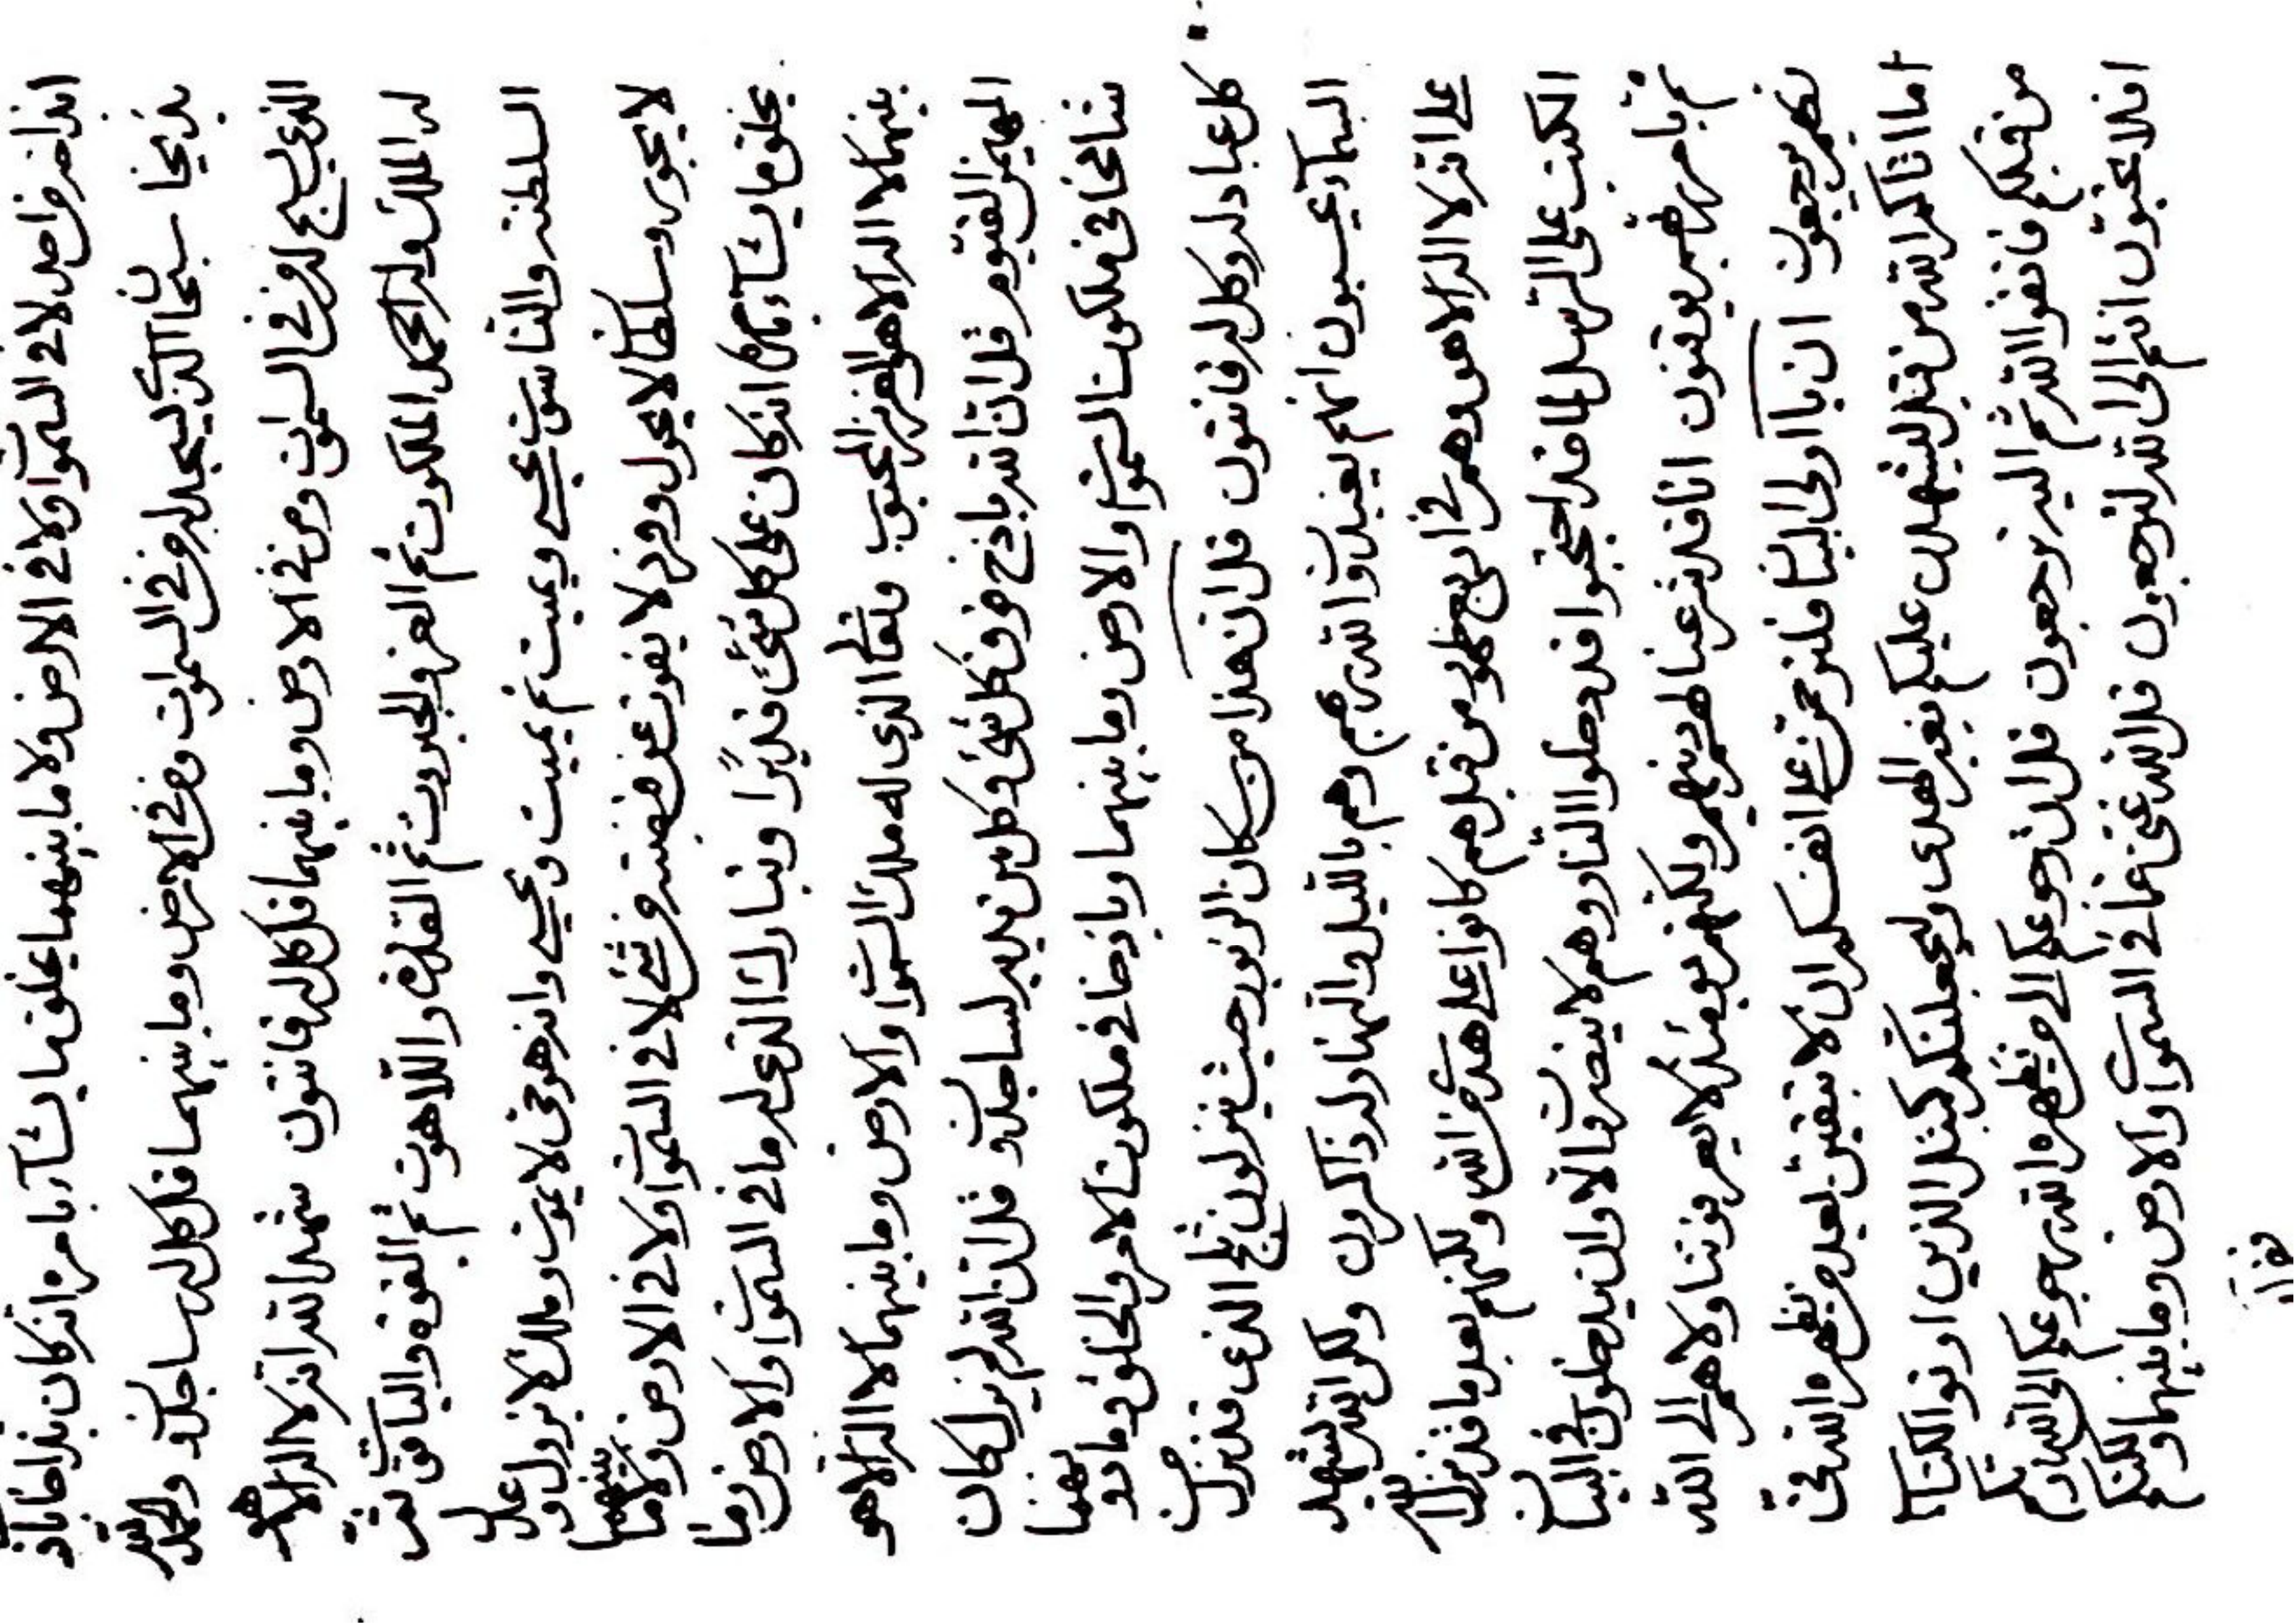 انداحد من احد لا في السموات ولا في الارض ولا ما بينهما يخلق ما يشآء بامره انه كان بذاخا باذخا
بذيخا سبحان الذي يسجد له من في السموات ومن في الارض وما بينهما قل كل له ساجدون والحمد لله
الذي يسبح له من في السموات ومن في الارض وما بينهما قل كل له قانتون شهد الله انه لا اله الا هو
له الملك والملكوت ثم العز والجبروت ثم القدرة واللاهوت ثم القوة والياقوت ثم
السلطنة والناسوت يحيي ويميت ثم يميت ويحيي وانه هو حي لا يموت وملك لا يزول وعدل
لا يجور وسلطان لا يحول وفرد لا يفوت عن قبضته من شيء لا في السموات ولا في الارض ولا ما بينهما
يخلق ما يشآء بامره انه كان على كل شيء قديرا وتبارك الذي له ما في السموات والارض وما
بينهما لا اله الا هو العزيز المحبوب وتعالى الذي له ملك السموات والارض وما بينهما لا اله الا هو
المهيمن القيوم قل ان الله باذخ فوق كل شيء وكل من يديه لساجدون قل ان الله لم يزل كان
شامخا في ملكوت السموات والارض وما بينهما وباذخا في ملكوت الامر والخلق وما دونهما
كل عباد له وكل له قانتون قل ان هذا من سكان الزبور حيث ينزلون ثلج الذي قد نزل من
السمآء يحسبون انهم يعبدون الله ربهم وهم بالليل والنهار له ذاكرون ولكن الله يشهد
على انه لا اله الا هو وهم في اربع ظهور من قبل هم كانوا على هدى من الله ولكنهم بعد ما قد نزل الله
الكتب على الرسل لما قد احتجبوا قد دخلوا النار وهم لا ينصرون الا وان يدخلون في البيان
ثم بامر ربهم يوقنون انا قد شرعنا لهم دينهم ولكنهم يومئذ لا يعرفوننا ولا هم الى الله
ربهم يرجعون ان يا اولى البيان فلترحمن على انفسكم ان لا تبقين بعد من يظهره الله في
اما اتاكم الله من قبل ليشهدن عليكم بغير الهدى وليجعلنكم كمثل الذين اوتوا الكتاب
من قبلكم فاتقوا الله ثم اليه ترجعون قل ان رجوعكم الى من يظهره الله رجوعكم الى الله ربكم
افلا تحبون انتم الى الله لترجعون قل الله غني عما في السموات والارض وما بينهما ولكنكم
فقرآء